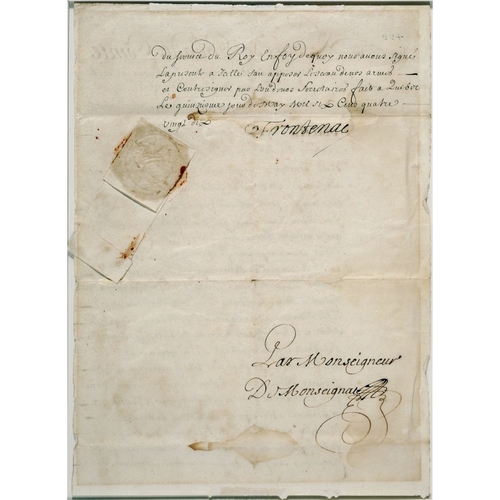 du service du Roy En foy de quoy nous avons signé
La presente a Icelle fau apposer Le sceau de nos armes
et Contresigner par L'un de nos Secretaires fait a Quebec
Le quinzieme jour de May Mil six Cens quatre
vingt dix
Frontenac
Par Monseigneur
De Monseignat